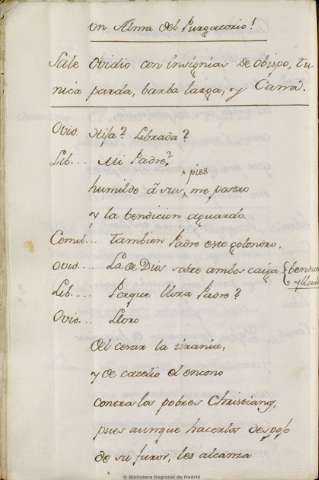 un Alma del Purgatorio!
Sale Ovidio con insignias de obispo, tu
nica parda, barba larga, y Cana.
Ovio. Hija? Librada?
Lib... Mi Padre?
pies
humilde á sus, me postro
y la bendicion aguardo.
Comil... tambien Padre este golondro.
Ovio... La de Dios sobre ambos caiga
Lib... Porque llora Padre?
Ovio... Lloro
del cesar la tirania,
y de catelio el encono
contra los pobres Christianos,
pues aunque hacerlos despojo
de su furor, les alcanza
© Biblioteca Nacional de España